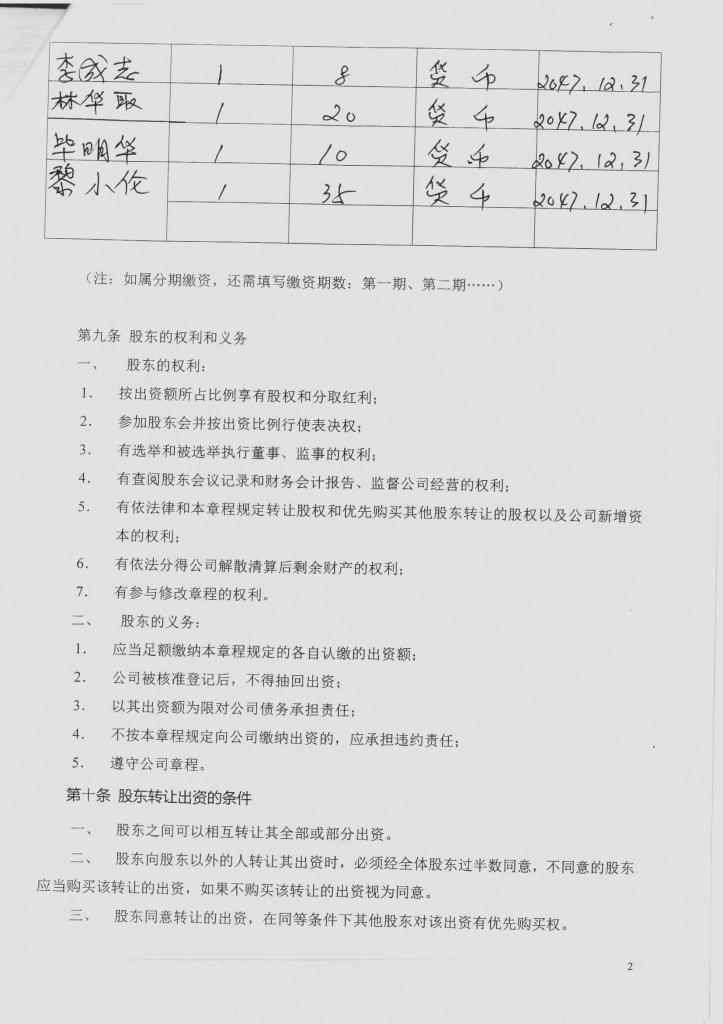 李成志 1 8 货币 2047.12.31
林华取 1 20 货币 2047.12.31
毕明华 1 10 货币 2047.12.31
黎小伦 1 35 货币 2047.12.31
（注：如属分期缴资，还需填写缴资期数：第一期、第二期……）
第九条 股东的权利和义务
一、 股东的权利：
1. 按出资额所占比例享有股权和分取红利；
2. 参加股东会并按出资比例行使表决权；
3. 有选举和被选举执行董事、监事的权利；
4. 有查阅股东会议记录和财务会计报告、监督公司经营的权利；
5. 有依法律和本章程规定转让股权和优先购买其他股东转让的股权以及公司新增资
本的权利；
6. 有依法分得公司解散清算后剩余财产的权利；
7. 有参与修改章程的权利。
二、 股东的义务：
1. 应当足额缴纳本章程规定的各自认缴的出资额；
2. 公司被核准登记后，不得抽回出资；
3. 以其出资额为限对公司债务承担责任；
4. 不按本章程规定向公司缴纳出资的，应承担违约责任；
5. 遵守公司章程。
第十条 股东转让出资的条件
一、 股东之间可以相互转让其全部或部分出资。
二、 股东向股东以外的人转让其出资时，必须经全体股东过半数同意，不同意的股东
应当购买该转让的出资，如果不购买该转让的出资视为同意。
三、 股东同意转让的出资，在同等条件下其他股东对该出资有优先购买权。
2